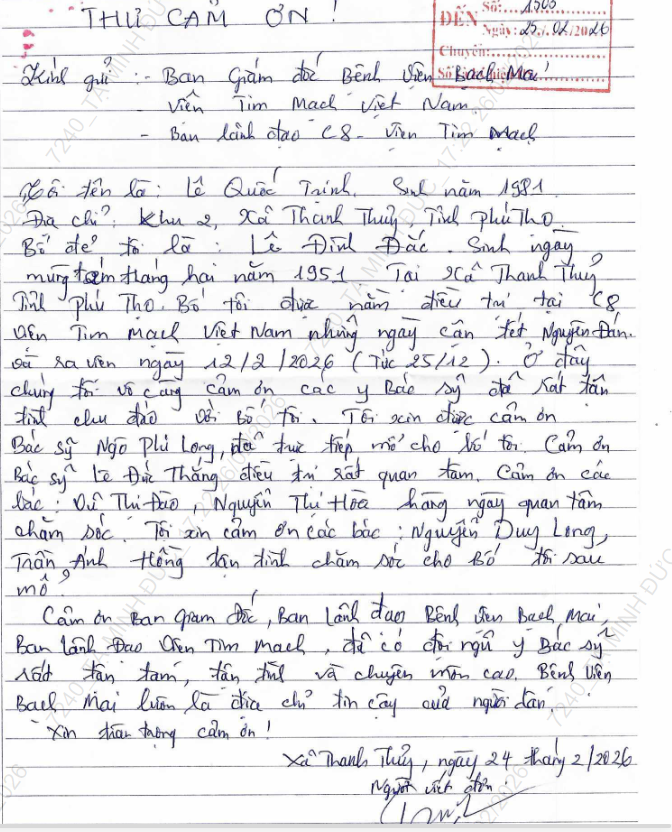 THƯ CẢM ƠN!
ĐẾN Số: 1505
Ngày: 25/02/2026
Chuyển:
Kính gửi: - Ban Giám đốc Bệnh Viện Bạch Mai
- Viện Tim Mạch Việt Nam
- Ban lãnh đạo C8 - Viện Tim Mạch
Tôi tên là: Lê Quốc Trình. Sinh năm 1981
Địa chỉ: Khu 2, Xã Thanh Thuỷ, Tỉnh Phú Thọ
Bố đẻ tôi là: Lê Đình Đắc. Sinh ngày
mùng tám tháng hai năm 1951 Tại Xã Thanh Thuỷ
Tỉnh Phú Thọ. Bố tôi được nằm điều trị tại C8
Viện Tim Mạch Việt Nam những ngày cận tết Nguyên Đán.
và ra viện ngày 12/2/2026 (Tức 25/12). Ở đây
chúng tôi vô cùng cảm ơn các y Bác sỹ đã rất tận
tình chu đáo với Bố tôi. Tôi xin được cảm ơn
Bác sỹ Ngô Phi Long, đã trực tiếp mổ cho bố tôi. Cảm ơn
Bác sỹ Lê Đức Thắng điều trị rất quan tâm. Cảm ơn các
bác: Vũ Thị Đào, Nguyễn Thị Hòa hàng ngày quan tâm
chăm sóc. Tôi xin cảm ơn các bác: Nguyễn Duy Long,
Trần Ánh Hồng tận tình chăm sóc cho Bố tôi sau
mổ.
Cảm ơn Ban Giám đốc, Ban Lãnh đạo Bệnh viện Bạch Mai,
Ban Lãnh Đạo Viện Tim Mạch, đã có đội ngũ y Bác sỹ
rất tận tâm, tận tình và chuyên môn cao. Bệnh Viện
Bạch Mai luôn là địa chỉ tin cậy của người dân.
Xin trân trọng cảm ơn!
Xã Thanh Thuỷ, ngày 24 tháng 2/2026
Người viết đơn: